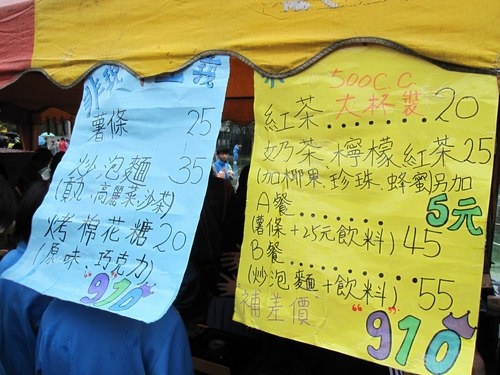 薯條 25
炒泡麵 35
(真丸.高麗菜.沙茶)
烤棉花糖 20
(原味.巧克力)
"910"
500C.C.
大杯裝
紅茶.......20
奶茶 檸檬紅茶25
(加椰果.珍珠.蜂蜜)另加
5元
A餐........
(薯條+25元飲料) 45
B餐........
(炒泡麵+飲料) 55
補差價
"910